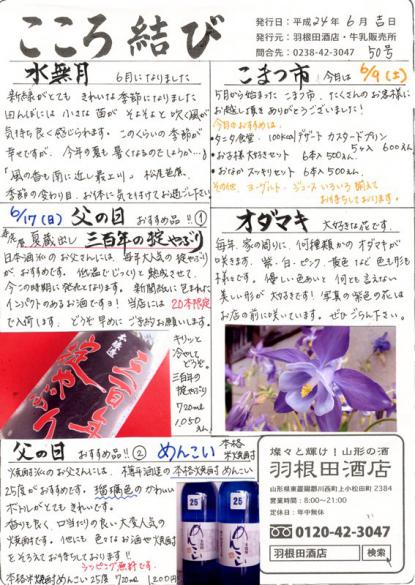 こころ結び
発行日：平成24年6月吉日
発行元：羽根田酒店・牛乳販売所
問合先：0238-42-3047
50号
水無月 6月になりました
新緑がとても きれいな季節になりました
田んぼには 小さな苗が そよそよと吹く風が
気持ち良く感じられます。このくらいの季節が
幸せですが、今年の夏も暑くなるのでしょうか…。
「風の香も南に近し最上川」 松尾芭蕉、
季節の変わり目、お体に気を付けてお過ごし下さい
こまつ市 今月は 6/9(土)
5月から始まった こまつ市、たくさんのお客様に
お越し頂き ありがとうございました！
今月のおすすめは、
・タニタ食堂 100kcalデザート カスタードプリン
5ヶ入 600えん
・お子様大好きセット 6本入 500えん
・おなかスッキリセット 6本入 500えん
その他、ヨーグルト・ジュース いろいろ揃えて
お待ちしております。
6/17(日) 父の日 おすすめ品!!①
寿虎屋 夏蔵出し 三百年の掟やぶり
日本酒派のお父さんには、毎年大人気の掟やぶり
がおすすめです。低温でじっくりと熟成させて、
今この時期に発売となります。新聞紙に包まれた
インパクトのあるお酒ですヨ！当店には20本限定
で入荷します。どうぞ早めにご予約お願いします。
キリッと
冷やして
どうぞ。
三百年の
掟やぶり
720ml
1,050えん
オダマキ 大好きな花です。
毎年 家の周りに、何種類かの オダマキが
咲きます。紫・白・ピンク・黄色など 色も形も
様々です。優しい色あいと 何とも言えない
美しい形が 大好きです！写真の紫色の花は
お店の前に咲いています。ぜひごらん下さい。
三百年
掟やぶり
父の日 おすすめ品!!② めんこい 本格米焼酎
焼酎派のお父さんには、樽平酒造の本格米焼酎めんこい
25度がおすすめです。瑠璃色のかわいい
ボトルがとてもきれいです。
香りも良く、口当たりの良い大変人気の
焼酎です。他にも 色々なお酒や焼酎
をとりそろえてお待ちしております!!
ラッピング無料です。
本格米焼酎めんこい25度 720ml 1,200円
25
めんこい
25
めんこい
燦々と輝け！山形の酒
羽根田酒店
山形県東置賜郡川西町上小松田町 2384
営業時間：8:00～21:00
定休日：年中無休
0120-42-3047
羽根田酒店 検索